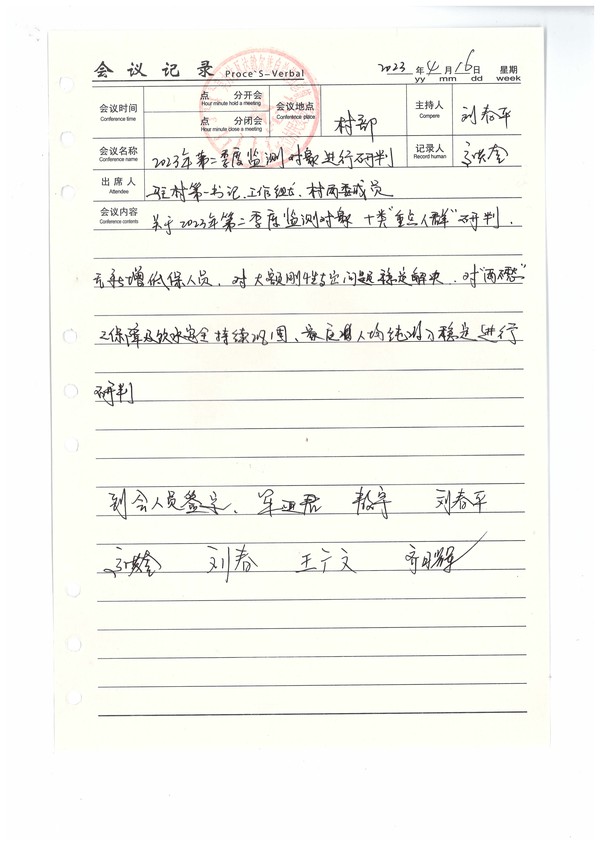 会议记录 Proce'S-Verbal 2023年4月16日 星期
yy mm dd week
会议时间 点 分开会 会议地点 村部 主持人 刘春平
Conference time Hour minute hold a meeting Conference place Compere
点 分闭会
Hour minute close a meeting
会议名称 2023年第二季度监测对象进行研判 记录人
Conference name Record human
出席人 驻村第一书记、工作组、村两委成员
Attendee
会议内容 关于2023年第二季度监测对象 十类"重点人群"研判.
Conference contents
无新增低保人员. 对大额刚性支出问题稳定解决. 对"两不愁"
三保障及饮水安全持续巩固、 人均纯 稳定进行
研判
到会人员签字、 刘春平
刘春 王宁文